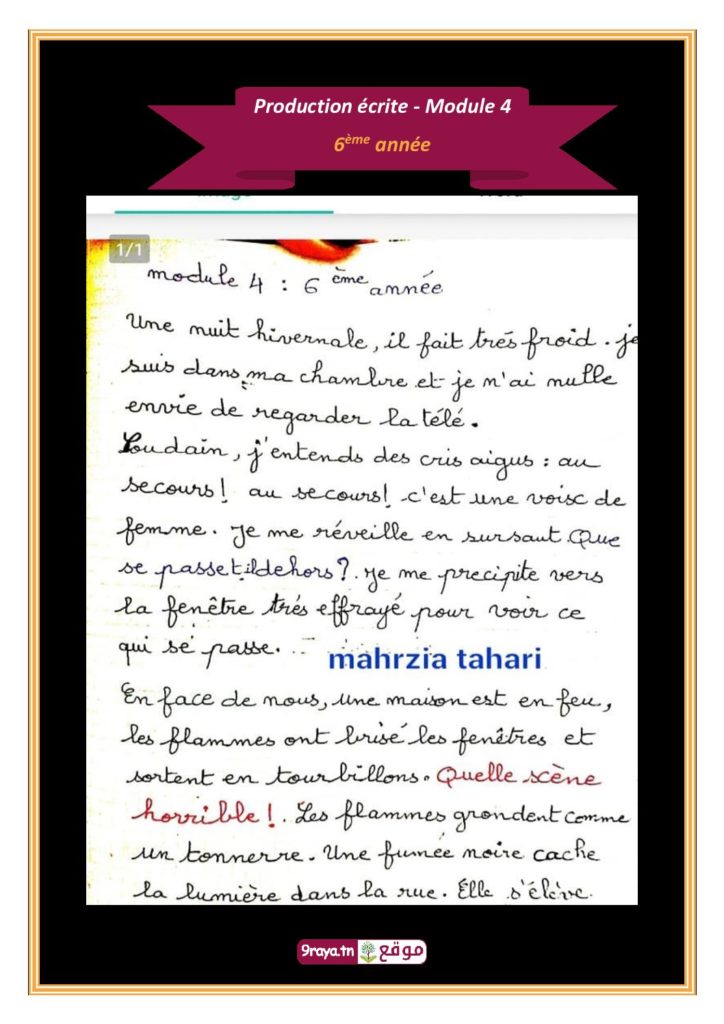 Production écrite - Module 4
6ème année
1/1
module 4 : 6 ème année
Une nuit hivernale, il fait trés froid. je
suis dans ma chambre et je n'ai nulle
envie de regarder la télé.
Soudain, j'entends des cris aigus : au
secours! au secours! c'est une voisc de
femme. Je me réveille en sursaut. Que
se passetildehors?. Je me precipite vers
la fenêtre trés effrayé pour voir ce
qui se passe.
mahrzia tahari
En face de nous, une maison est en feu,
les flammes ont brisé les fenêtres et
sortent en tourbillons. Quelle scène
horrible!. Les flammes grondent comme
un tonnerre. Une fumée noire cache
la lumière dans la rue. Elle s'élève
9raya.tn موقع